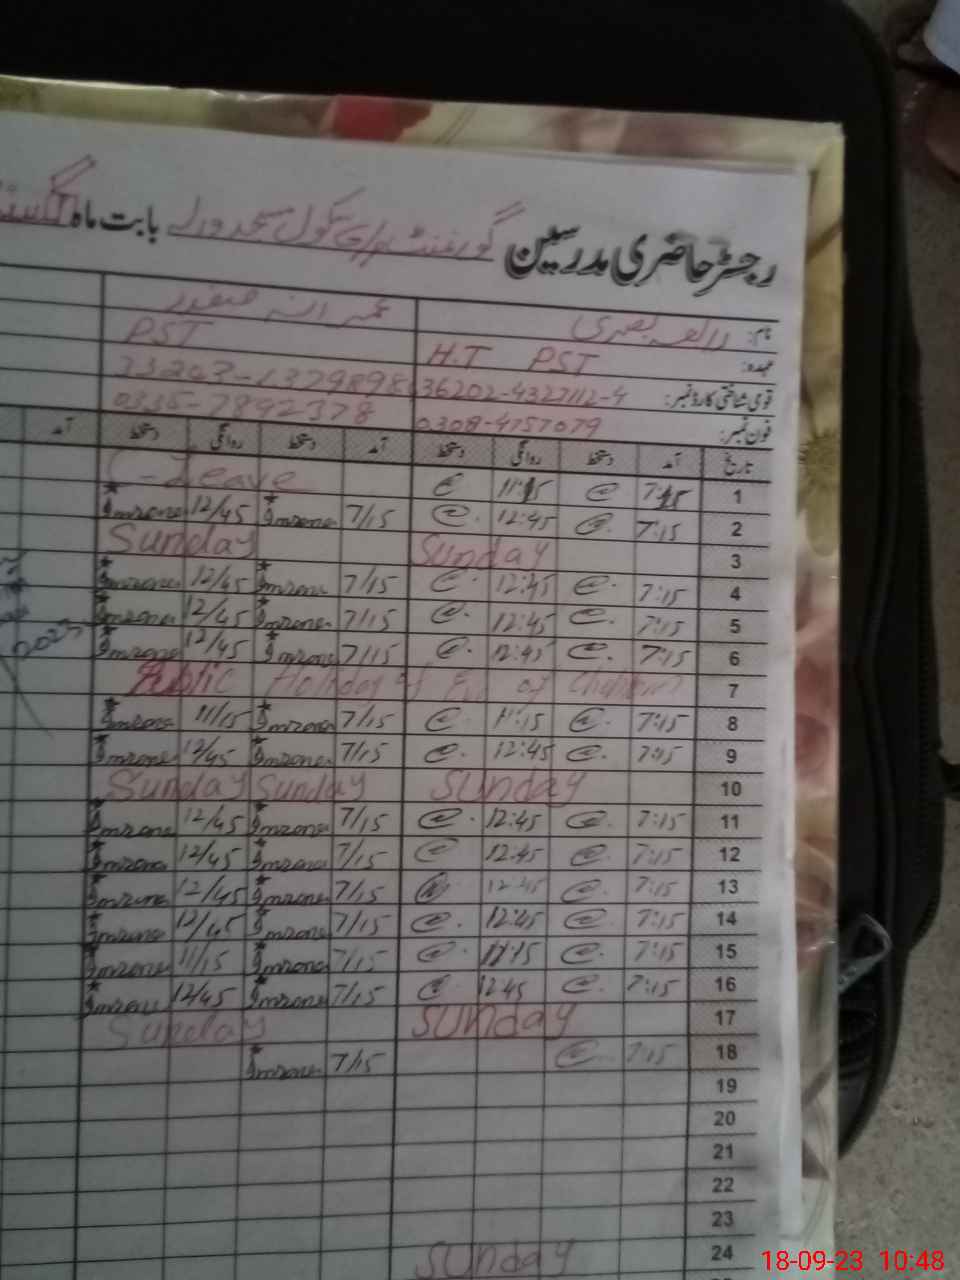 رجسٹر حاضری مدرسین گورنمنٹ پرائمری سکول بابت ماہ
نام:
عہدہ: H.T PST PST
قومی شناختی کارڈ نمبر: 36202-4327112-4
فون نمبر: 0308-4757079 0335-7892378
تاریخ آمد دستخط روانگی دستخط آمد دستخط روانگی دستخط آمد
1 7:15 @ 11:15 @ C-Leave
2 7:15 @ 12:45 @ 7/15 Imrana 12/45 Imrana
3 Sunday Sunday
4 7:15 @ 12:45 @ 7/15 Imrana 12/45 Imrana
5 7:15 @ 12:45 @ 7/15 Imrana 12/45 Imrana
6 7:15 @ 12:45 @ 7/15 Imrana 12/45 Imrana
7 Public Holiday of Eid of
8 7:15 @ 11:15 @ 7/15 Imrana 11/15 Imrana
9 7:15 @ 12:45 @ 7/15 Imrana 12/45 Imrana
10 Sunday Sunday Sunday
11 7:15 @ 12:45 @ 7/15 Imrana 12/45 Imrana
12 7:15 @ 12:45 @ 7/15 Imrana 12/45 Imrana
13 7:15 @ 12:45 @ 7/15 Imrana 12/45 Imrana
14 7:15 @ 12:45 @ 7/15 Imrana 12/45 Imrana
15 7:15 @ 11:15 @ 7/15 Imrana 11/15 Imrana
16 7:15 @ 12:45 @ 7/15 Imrana 12/45 Imrana
17 Sunday Sunday
18 7:15 @ 7/15 Imrana
19
20
21
22
23
24 Sunday
2023
18-09-23 10:48